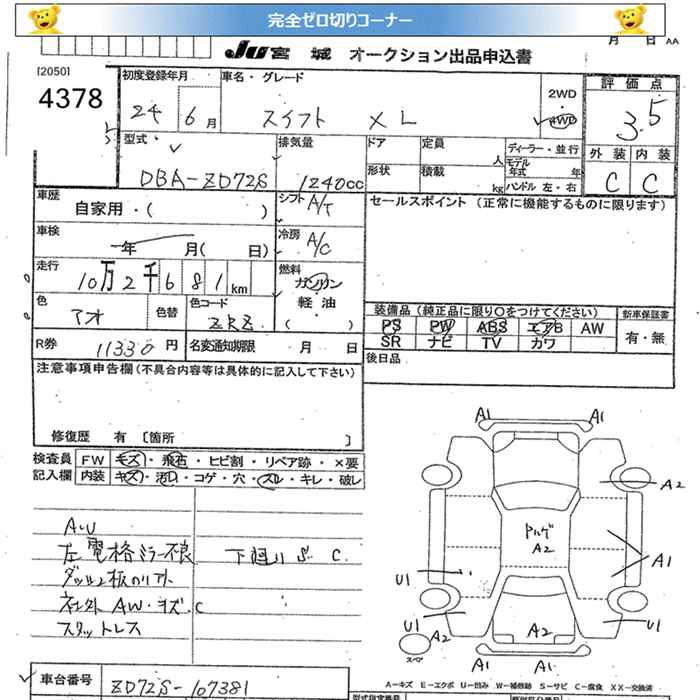 完全ゼロ切りコーナー
月 日 AA
JU宮城 オークション出品申込書
[2050]
4378
初度登録年月
24 6月
車名・グレード
スイフト XL
2WD
・
4WD
評価点
3.5
外装 内装
C C
型式
DBA-ZD72S
排気量
1240cc
ドア 定員 人
形状 積載 kg
ディーラー・並行
モデル年式 年
ハンドル 左・右
車歴
自家用・( )
シフト
A/T
セールスポイント (正常に機能するものに限ります)
車検
年 月( 日)
冷房
A/C
走行
10万2千681km
燃料
ガソリン
・
軽油
( )
色
アオ
色替
色コード
ZRZ
装備品 (純正品に限り○をつけてください)
PS PW ABS エアB AW
SR ナビ TV カワ
新車保証書
有・無
R券 11330円
名変通知期限 月 日
後日品
注意事項申告欄 (不具合内容等は具体的に記入して下さい)
修復歴 有 〔箇所 〕
検査員記入欄
FW キズ・飛石・ヒビ割・リペア跡・×要
内装 キズ・汚れ・コゲ・穴・スレ・キレ・破レ
左電格ミラー不良 下廻り S C
社外AW・キズ.C
スタットレス
A1 A1
A2
A2
A1
U1
U1
A2
A2
U1
A1 A1
スペア
車台番号
ZD72S-107381
A-キズ E-エクボ U-凹み W-補修跡 S-サビ C-腐食 XX-交換済